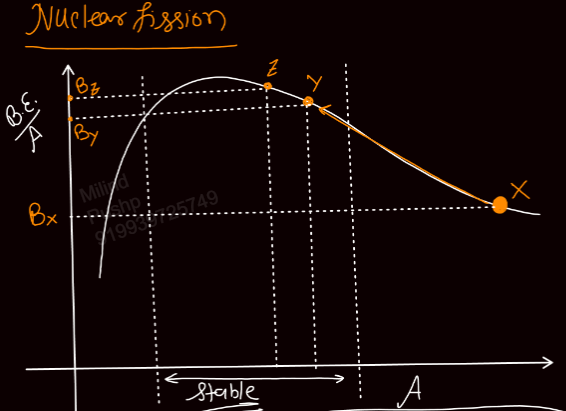 Nuclear fission
B.E.
A
Bz
By
Bx
Z
Y
X
Milind
919939725749
stable
A